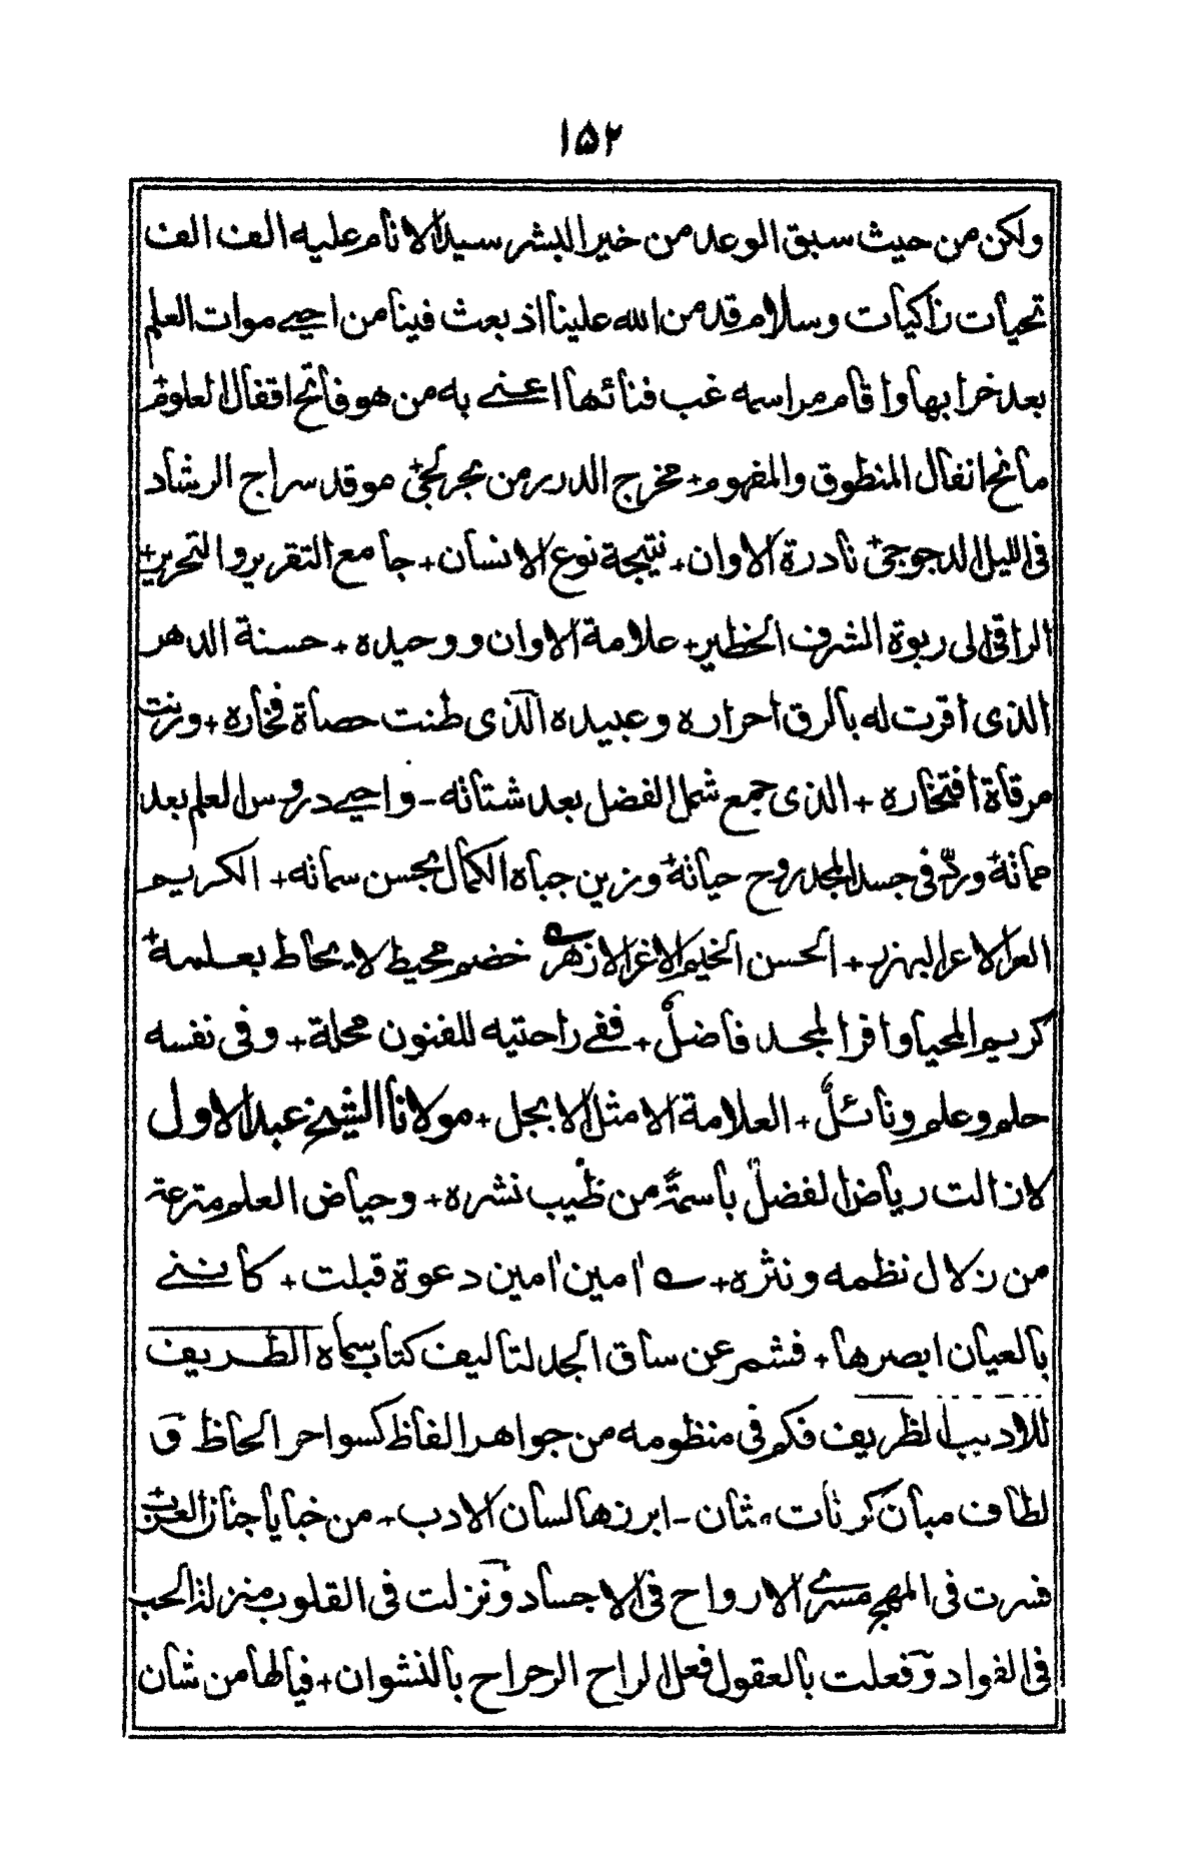 ۱۵۲
ولكن من حيث سبق الوعد من خير البشر سيد الانام عليه الف الف
تحيات زاكيات وسلام قد من الله علينا اذ بعث فينا من احيے موات العلم
بعد خرابها واقام مراسمه غب فنائها اعنے به من هو فاتح اقفال العلوم+
مانح انفال المنطوق والمفهوم+ مخرج الدرر من بحر لجى+ موقد سراج الرشاد
فى الليل الدجوجى+ نادرة الاوان+ نتيجة نوع الانسان+ جامع التقرير والتحرير+
الراقى الى ربوة الشرف الخطير+ علامة الاوان ووحيده+ حسنة الدهر
الذى اقرت له بالرق احراره وعبيده الذى طنت حصاة فخاره+ وزينت
مرقاة افتخاره+ الذى جمع شمل الفضل بعد شتاته- واحيے دروس العلم بعد
مماته+ وردّ فى جسد المجد روح حياته+ وزين جباه الكمال بحسن سماته+ الكريم
العر الاعر البهزر+ الحسن الخيم الاغر الازهرے خضم محيط لا يحاط بعلمه+
كريم المحيا وافر المجد فاضلٌ+ ففے راحتيه للفنون محلة+ وفى نفسه
حلم وعلم ونائلٌ+ العلامة الامثل الابجل+ مولانا الشيخ عبد الاول
لازالت رياض الفضل باسمةً من طيب نشره+ وحياض العلم مترعة
من زلال نظمه ونثره+ ے امين امين دعوة قبلت+ كاننے
بالعيان ابصرها+ فشمر عن ساق الجد لتاليف كتاب سماه الطريف
للاديب الظريف فكم فى منظومه من جواهر الفاظ كسواحر الحاظ و
لطاف مبان كرنات مثان- ابرزها لسان الادب+ من خبايا جنان العرب+
فسرت فى المهج مسرے الارواح فى الاجساد ونزلت فى القلوب منزلة الحب
فى الفواد وفعلت بالعقول فعل الراح الرحراح بالنشوان+ فيالها من شان